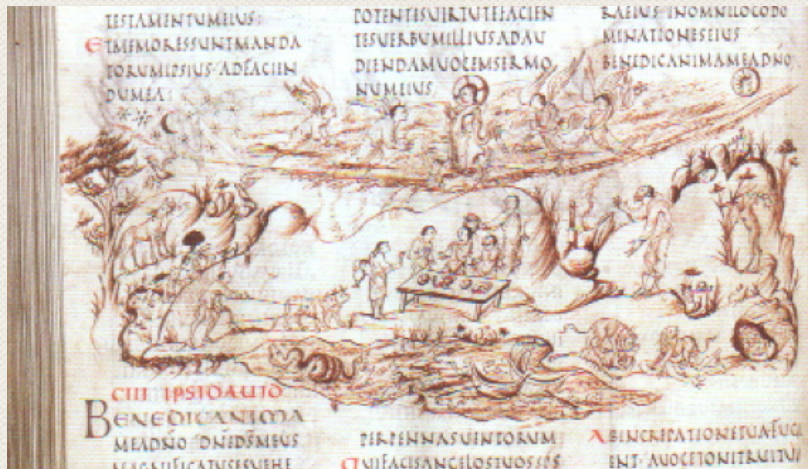 TESTAMENTUMEIUS:
ETMEMORESSUNTMANDA
TORUMIPSIUS·ADFACIEN
DUMEA:
POTENTESUIRTUTEFACIEN
TESUERBUMILLIUSADAU
DIENDAMUOCEMSERMO
NUMEIUS;
RAEIUS·INOMNILOCODO
MINATIONESEIUS
BENEDICANIMAMEADNO
CIII IPSIDAUID
BENEDICANIMA
MEADNO DNEDSMEUS
PERPENNASUENTORUM
QUIFACISANGELOSTUOSSPS
ABINCREPATIONETUAFUGI
ENT·AUOCETONITRUITUI